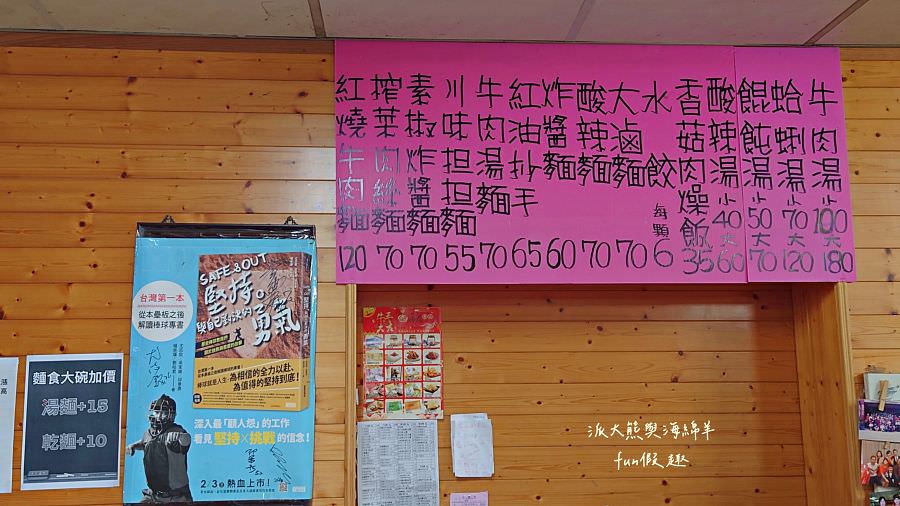 紅燒牛肉麵 120
搾菜肉絲麵 70
素椒炸醬麵 70
川味担担麵 55
牛肉湯麵 70
紅油抄手 65
炸醬麵 60
酸辣麵 70
大滷麵 70
水餃 每顆 6
香菇肉燥飯 35
酸辣湯 小40 大60
餛飩湯 小50 大70
蛤蜊湯 小70 大120
牛肉湯 小100 大180
SAFE & OUT
堅持。
與自己對決的勇氣
台灣第一本
從本壘板之後
解讀棒球專書
為相信的全力以赴、
棒球就是人生，為值得的堅持到底！
深入最「顧人怨」的工作
看見堅持×挑戰的信念！
2/3 熱血上市！
麵食大碗加價
湯麵+15
乾麵+10
漲
高
派大熊與海綿羊
fun假趣